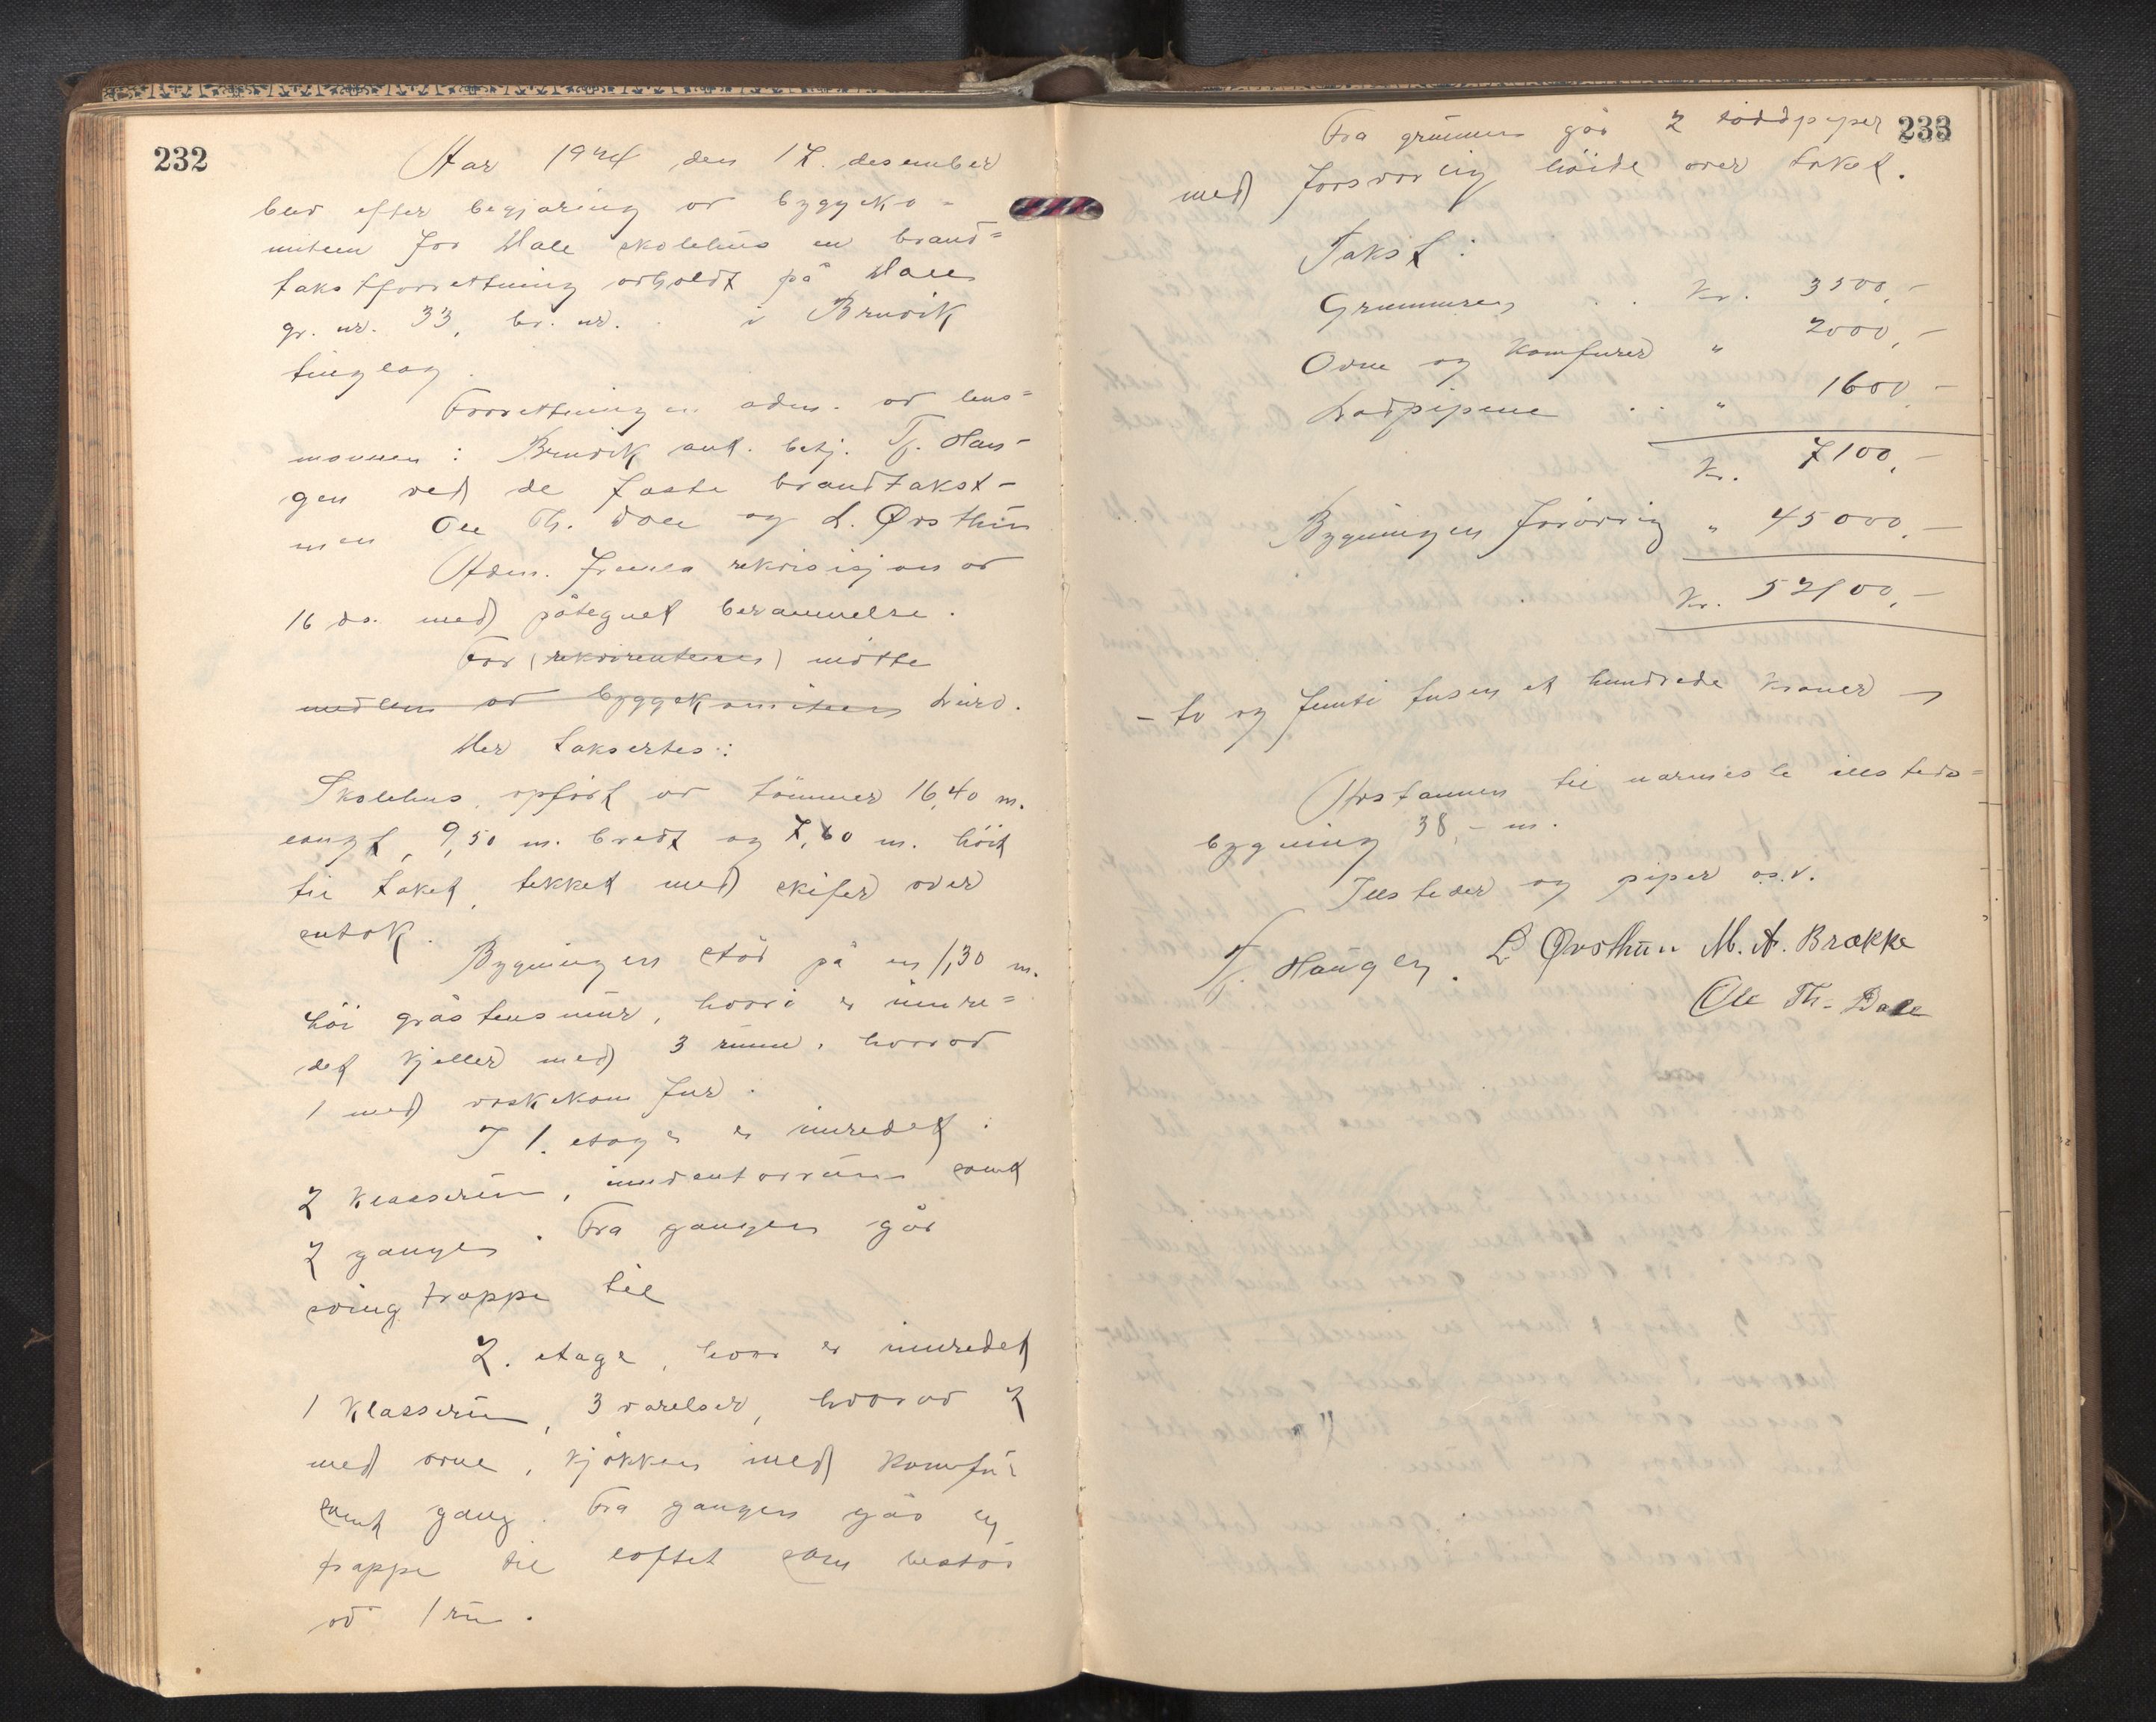 232
Aar 1924 den 17. desember
blev efter begjæring av byggeko-
miteen for Dale skolehus en brand=
takstforretning avholdt på Dale
gr. nr. 33, br. nr. . i Bruvik
tinglag.
Forretningen adm. av lens=
mannen i Bruvik aut. betj. Tj. Hau-
gen ved de faste brandtakst-
men Ole Th. Dale og L. Ørsthun
Adm. fremla rekvisisjon av
16 ds. med påtegnet berammelse.
For (rekvirenterne) møtte
medlem av byggekomiteen
Her taksertes:
Skolehus, opført av tømmer 16,40 m.
langt, 9,50 m. bredt og 7,60 m. höit
til taket, tekket med skifer over
sutak.
Bygningen står på en 1,30 m.
höi gråstensmur, hvori er innre=
det kjeller med 3 rum, hvorav
1 med vaskekomfur.
I 1. etage er innredet:
2 klasserum, inventarrum samt
2 ganger. Fra gangen går
svingtrappe til
2. etage, hvor er innredet
1 klasserum, 3 værelser, hvorav 2
med ovne, kjøkken med komfur
samt gang. Fra gangen går en
trappe til loftet som består
av 1 rum.
233
Fra grunnen går 2 loddpiper
med forsvarlig höide over taket.
Takst:
Grunnmuren . . kr. 3500,-
Ovne og komfurer " 2000,-
Lodpipene . . " 1600,-
kr. 7100,-
Bygningen forøvrig " 45000,-
kr. 52100,-
- to og femti tusen et hundrede kroner -
Avstannen til nærmeste illsteds=
bygning 38,- m.
Illsteder og piper o.s.v.
Tj. Haugen. L Ørsthun M. A. Brække
Ole Th. Dale